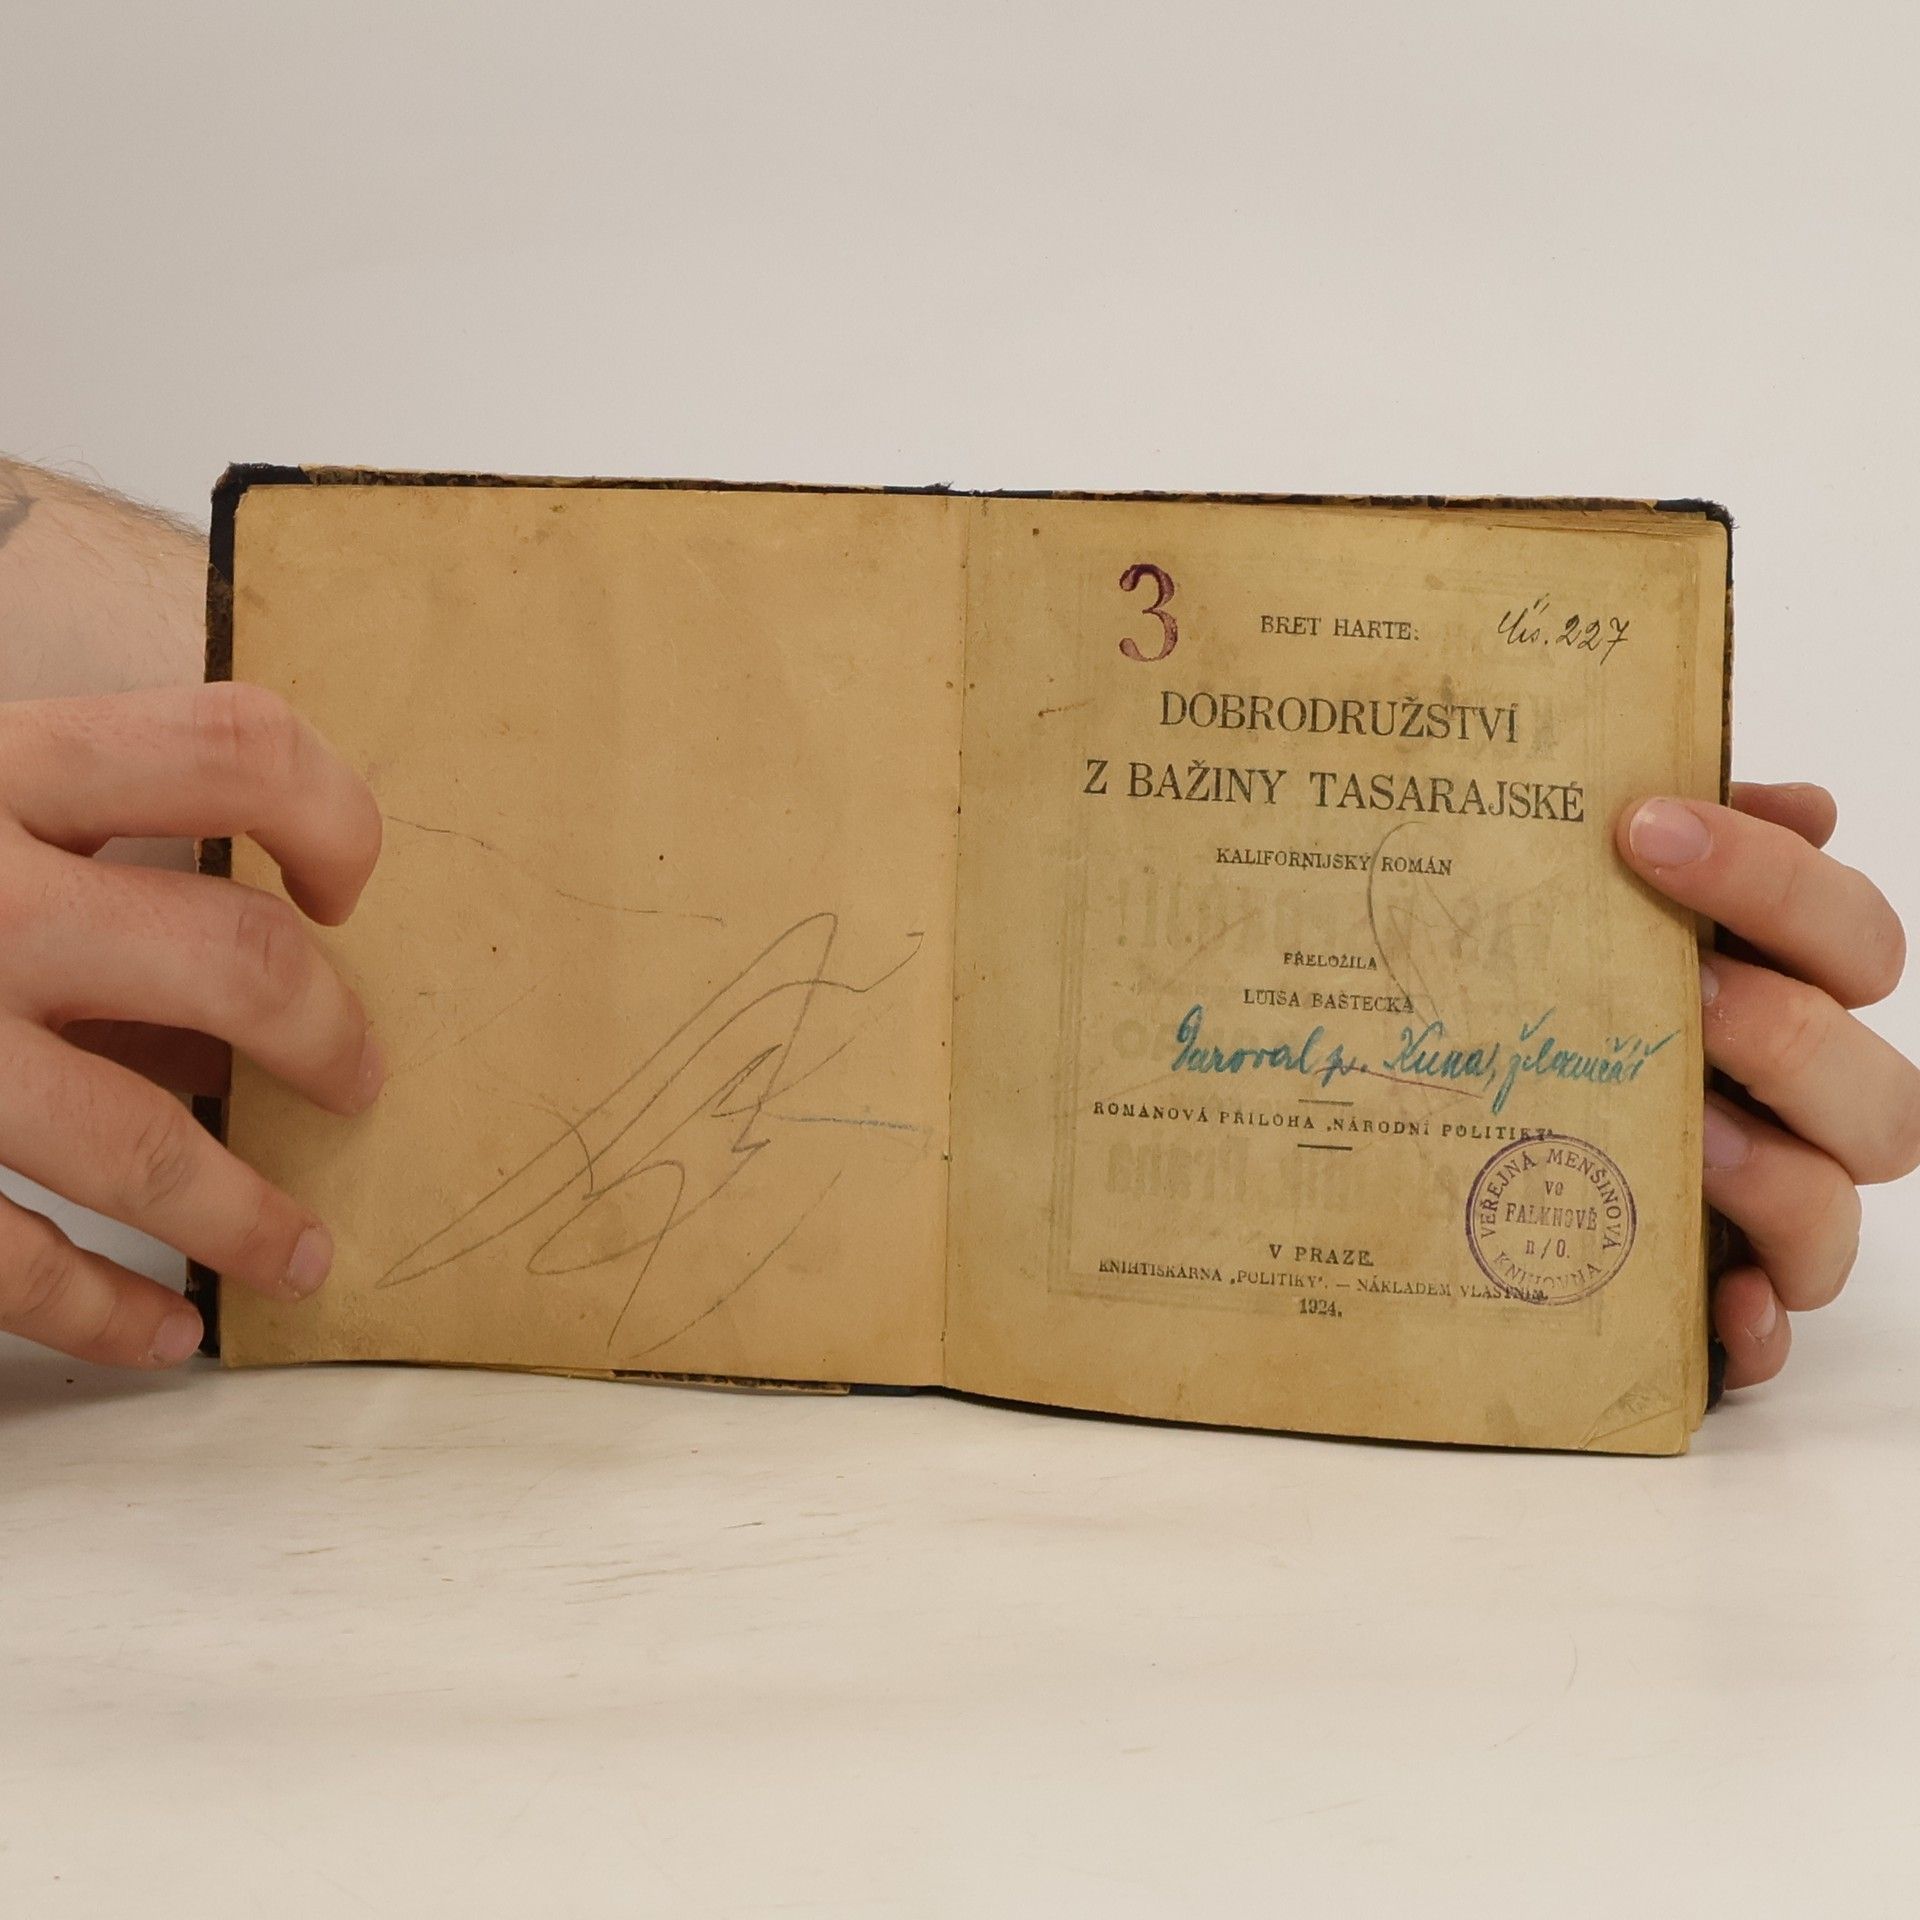 3
BRET HARTE:
Čís. 227
DOBRODRUŽSTVÍ
Z BAŽINY TASARAJSKÉ
KALIFORNIJSKÝ ROMÁN
PŘELOŽILA
LUISA BAŠTECKÁ
Daroval p. Kuna, železničář
ROMÁNOVÁ PŘÍLOHA „NÁRODNÍ POLITIKY“
VEŘEJNÁ MENŠINOVÁ KNIHOVNA
ve
FALKNOVĚ
n/O.
V PRAZE.
KNIHTISKÁRNA „POLITIKY“. — NÁKLADEM VLASTNÍM.
1924.